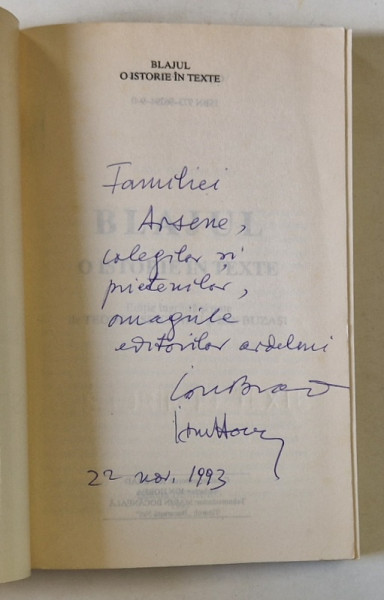 BLAJUL
O ISTORIE ÎN TEXTE
Familiei
Arsene,
colegilor și
prietenilor,
omagiile
editorilor ardeleni
22 nov. 1993